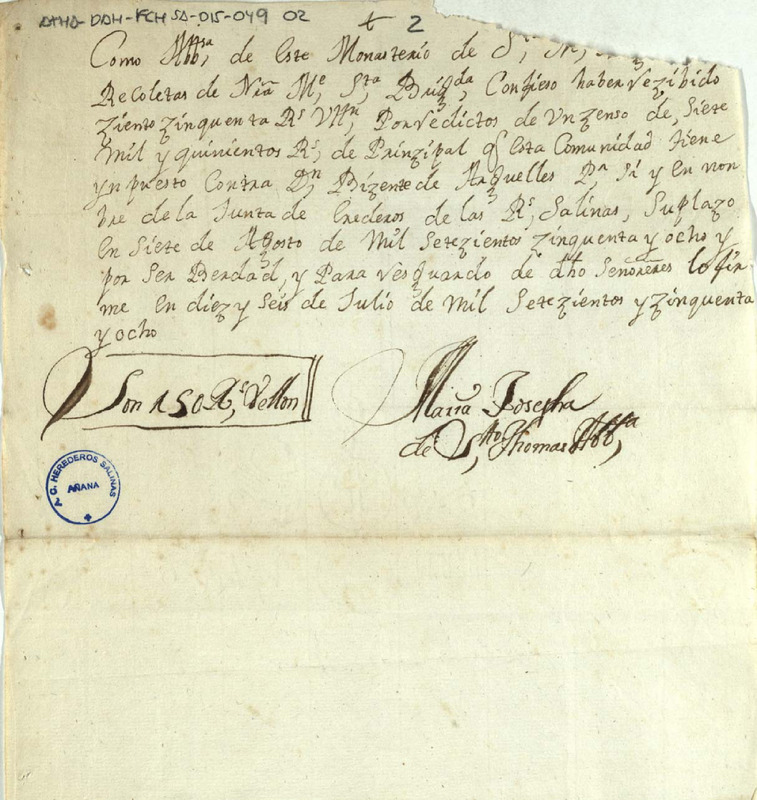 ATHA-DDH-FCHSA-015-049 02
t 2
Como Abb,sa de Este Monasterio de S,
Recoletas de Nra Me, Sta Brigda, Confieso haber rezibido
ziento zinquenta Rs Vlln, Por redictos de Un zenso de, Siete
Mil y quinientos Rs, de Prinzipal q Esta Comunidad tiene
ynpuesto Contra Dn Bizente de Arguelles Pr Si y en non
bre de la Junta de Erederos de las Rs, Salinas, Su plazo
En Siete de Agosto de Mil Setezientos zinquenta y ocho y
por Ser Berdad, y Para resguardo de dho Señoreres lo fir
me En diez y Seis de Julio de Mil Setezientos y zinquenta
y ocho
Son 150 Rs, Vellon
Maria Josepha
de Sto, Thomas Abb,sa
C. HEREDEROS SALINAS
AÑANA